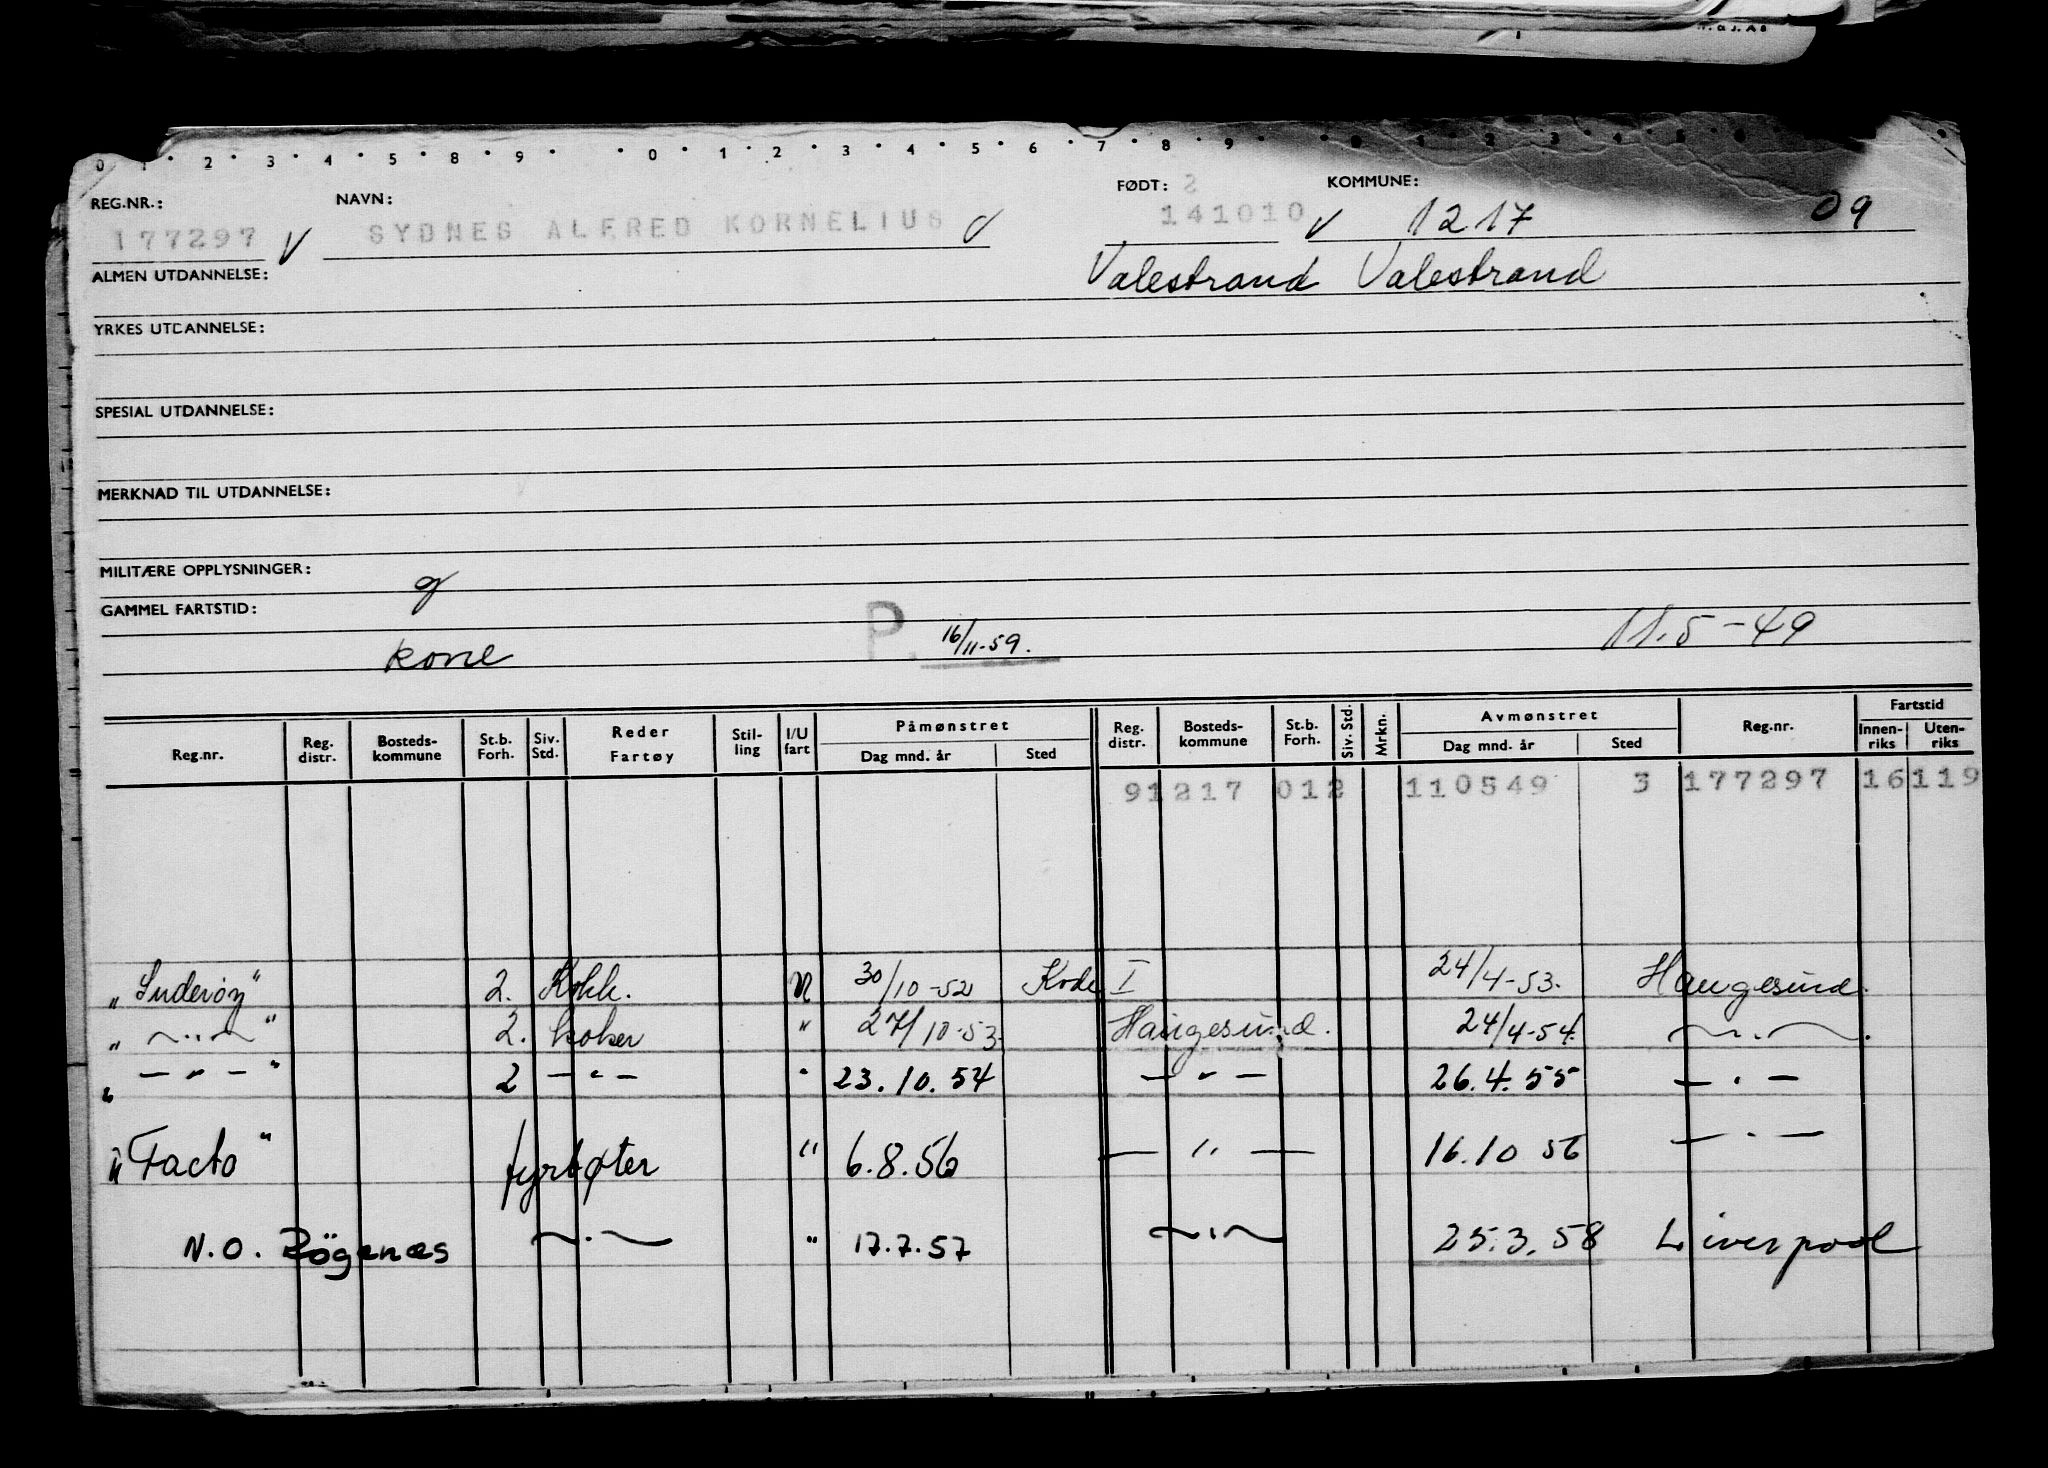 0 1 2 3 4 5 8 9 0 1 2 3 4 5 6 7 8 9
REG.NR.: NAVN: FØDT: 2 KOMMUNE:
177297 V SYDNES ALFRED KORNELIUS V 141010 V 1217 09
ALMEN UTDANNELSE: Valestrand Valestrand
YRKES UTDANNELSE:
SPESIAL UTDANNELSE:
MERKNAD TIL UTDANNELSE:
MILITÆRE OPPLYSNINGER: g
GAMMEL FARTSTID:
kone P. 16/11-59. 11.5-49
Påmønstret Avmønstret Fartstid
Reg.nr. Reg. distr. Bosteds- kommune St.b. Forh. Siv. Std. Reder Fartøy Stil- ling I/U fart Dag mnd. år Sted Reg. distr. Bosteds- kommune St.b. Forh. Siv. Std. Mrkn. Dag mnd. år Sted Reg.nr. Innen- riks Uten- riks
91217 012 110549 3 177297 16 119
"Suderøy" 2. Kokk. U 30/10-52 Kode I 24/4-53. Haugesund.
" ~ . . ~ " 2. koker " 27/10-53. Haugesund. 24/4-54. ~ . ~ .
" — " — " 2 — " — " 23.10.54 — " — 26.4.55 — . —
"Facto" fyrbøter " 6.8.56 — " — 16.10 56 — . —
N.O. Rögenæs ~ . ~ " 17.7.57 ~ . ~ 25.3.58 Liverpool